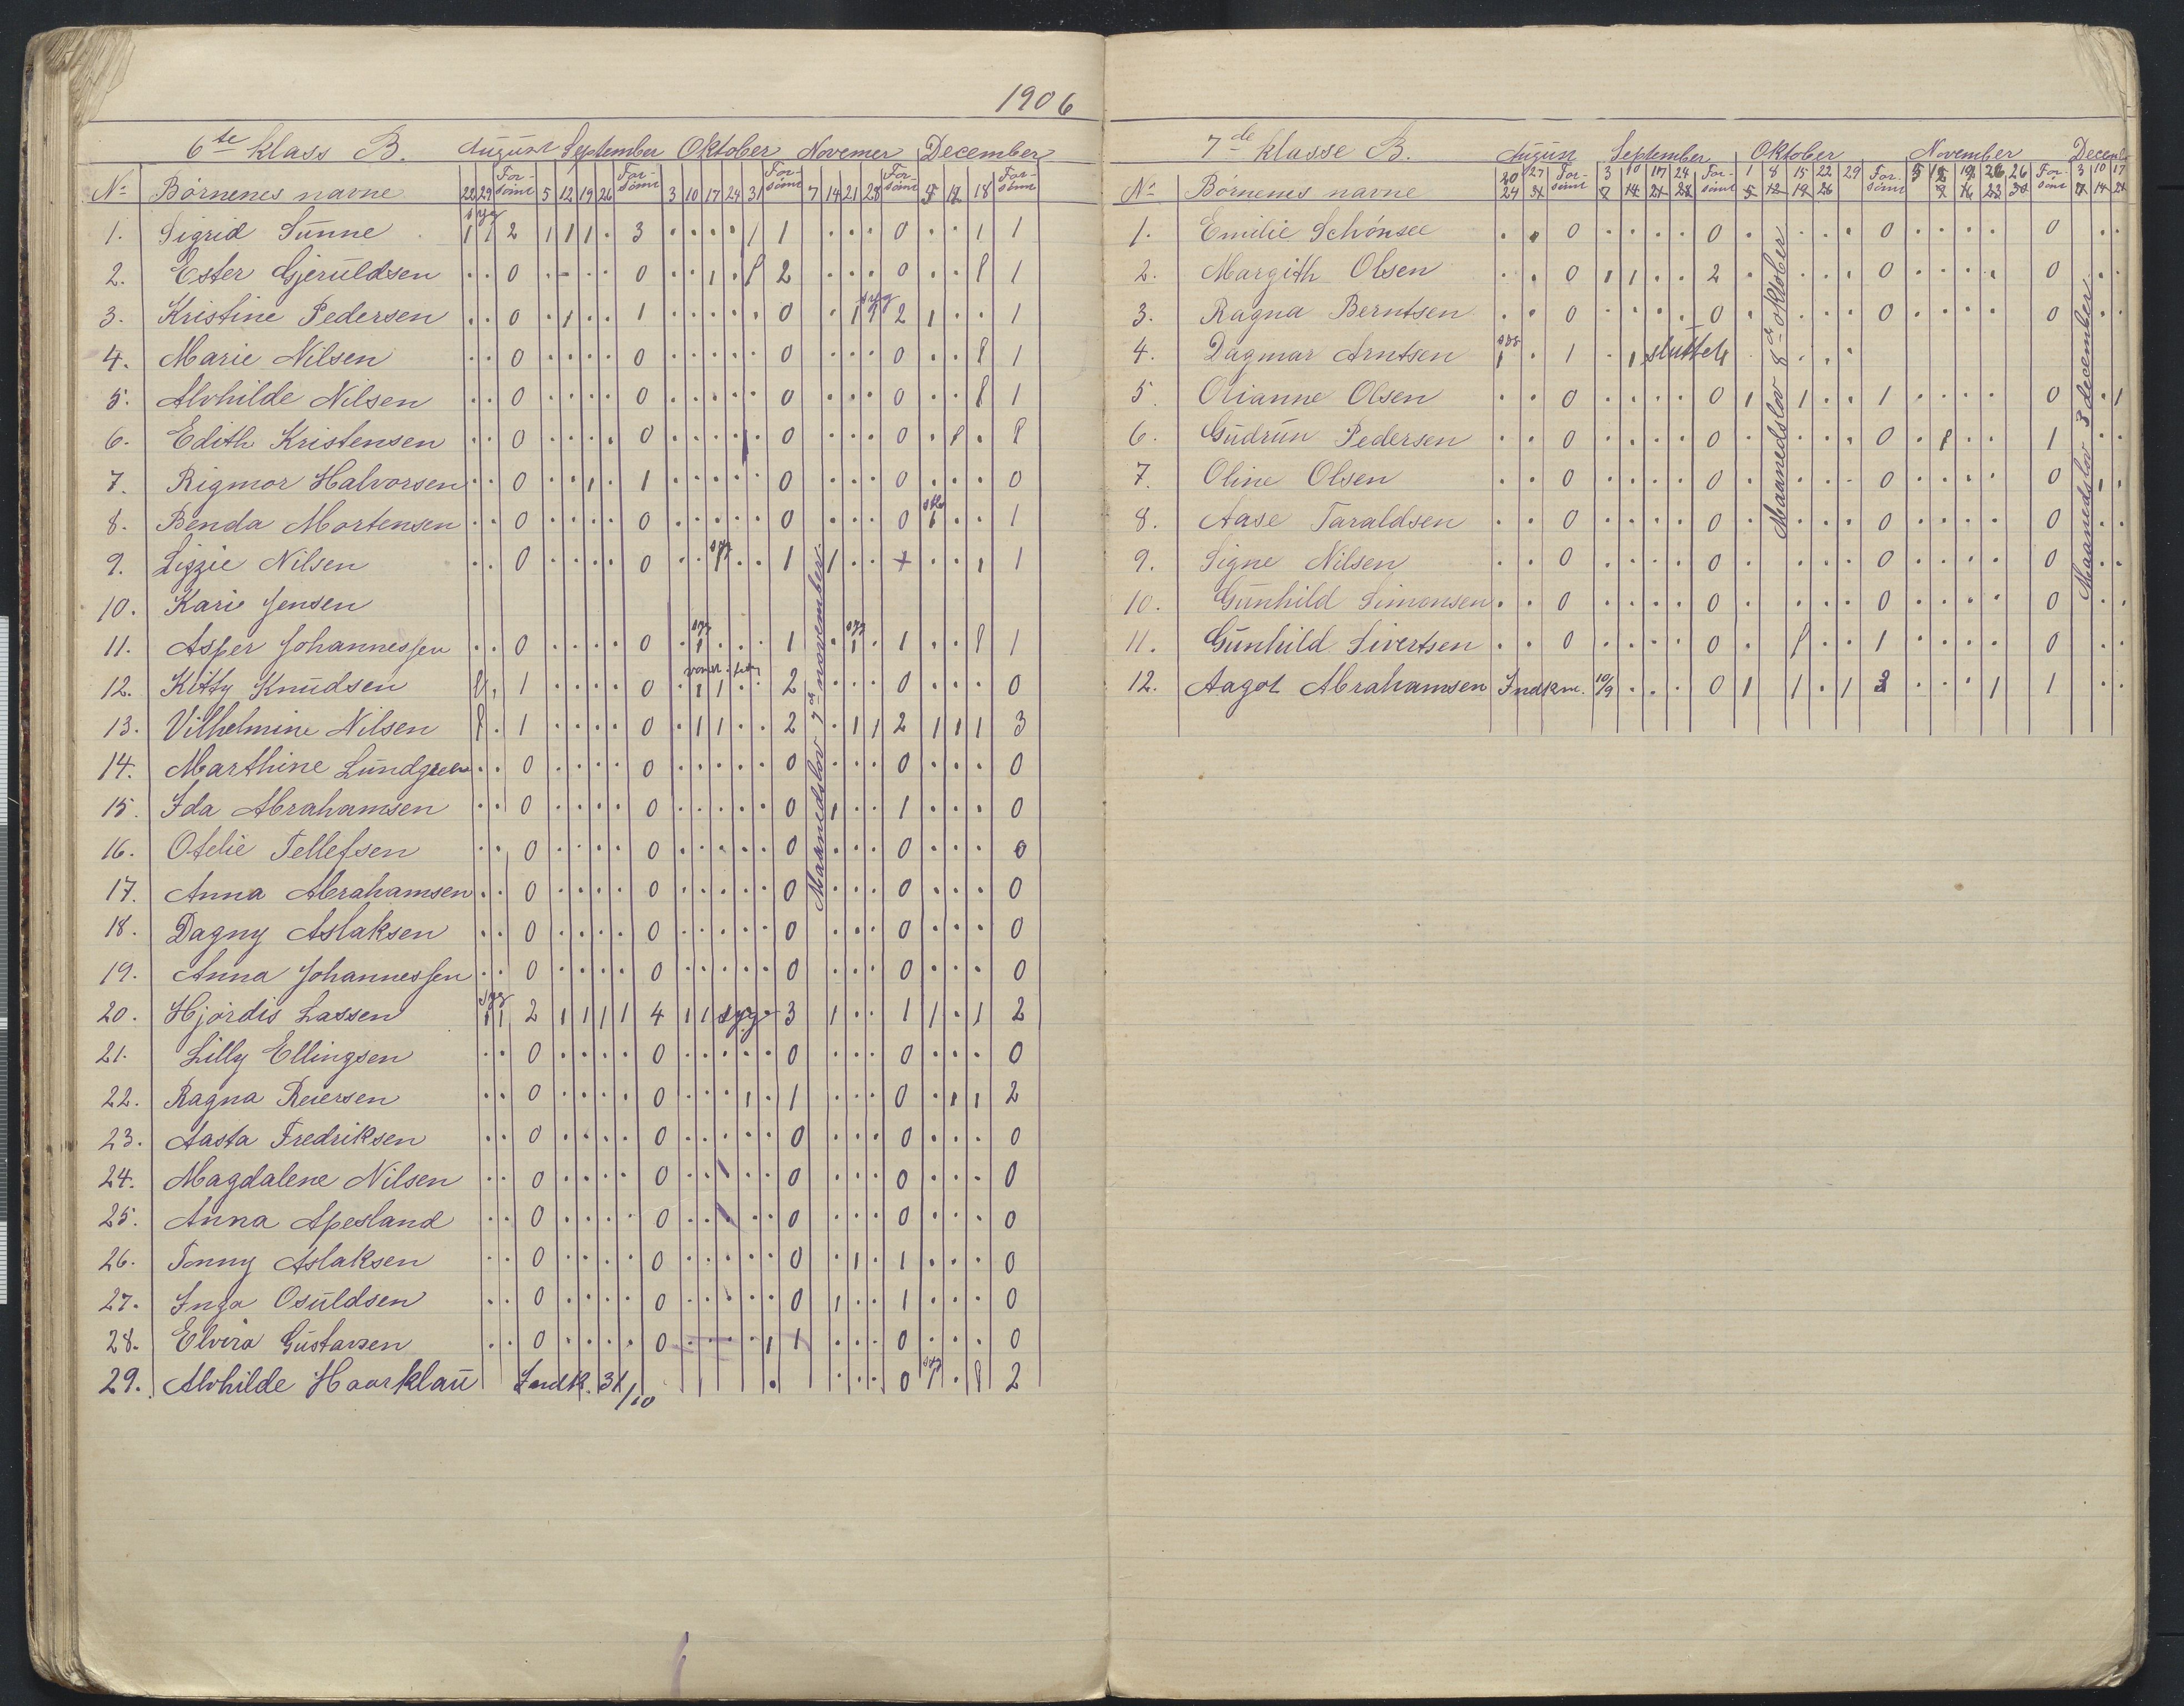 1906
6te klass B. August September Oktober Novemer December
No Børnenes navne 22 29 For-sømt 5 12 19 26 For-sømt 3 10 17 24 31 For-sømt 7 14 21 28 For-sømt 5 12 18 For-sømt
1. Sigrid Sunne syg 1 1 2 1 1 1 . 3 . . . . 1 1 . . . 0 . . 1 1
2. Ester Gjeruldsen . . 0 . - . . 0 . . 1 . 1 2 . . . 0 . . 1 1
3. Kristine Pedersen . . 0 . 1 . . 1 . . . . . 0 . 1 syg 1 2 1 . . 1
4. Marie Nilsen . . 0 . . . . 0 . . . . . 0 . . . 0 . . 1 1
5. Alvhilde Nilsen . . 0 . . . . 0 . . . . . 0 . . . 0 . . 1 1
6. Edith Kristensen . . 0 . . . . 0 . . . . . 0 . . . 0 . 1 . 1
7. Rigmor Halvorsen . . 0 . . 1 . 1 . . . . . 0 . . . 0 . . . 0
8. Benda Mortensen . . 0 . . . . 0 . . . . . 0 . . . 0 1 . . 1
9. Lizzie Nilsen . . 0 . . . . 0 . . syg 1 . . 1 1 . . + . . 1 1
10. Kari Jensen
11. Asper Johannessen . . 0 . . . . 0 . syg 1 . . . 1 . syg 1 . 1 . . 1 1
12. Kitty Knudsen 1 . 1 . . . . 0 . 1 1 . . 2 . . . 0 . . . 0
13. Vilhelmine Nilsen 1 . 1 . . . . 0 . 1 1 . . 2 . 1 1 2 1 1 1 3
14. Marthine Lundgreen . . 0 . . . . 0 . . . . . 0 . . . 0 . . . 0
15. Ida Abrahamsen . . 0 . . . . 0 . . . . . 0 1 . . 1 . . . 0
16. Otelie Tellefsen . . 0 . . . . 0 . . . . . 0 . . . 0 . . . 0
17. Anna Abrahamsen . . 0 . . . . 0 . . . . . 0 . . . 0 . . . 0
18. Dagny Aslaksen . . 0 . . . . 0 . . . . . 0 . . . 0 . . . 0
19. Anna Johannessen . . 0 . . . . 0 . . . . . 0 . . . 0 . . . 0
20. Hjørdis Lassen syg 1 1 2 1 1 1 1 4 1 1 syg . 3 1 . . 1 1 . 1 2
21. Lilly Ellingsen . . 0 . . . . 0 . . . . . 0 . . . 0 . . . 0
22. Ragna Reiersen . . 0 . . . . 0 . . . 1 . 1 . . . 0 . 1 1 2
23. Aasta Fredriksen . . 0 . . . . 0 . . . . . 0 . . . 0 . . . 0
24. Magdalene Nilsen . . 0 . . . . 0 . . . . . 0 . . . 0 . . . 0
25. Anna Apesland . . 0 . . . . 0 . . . . . 0 . . . 0 . . . 0
26. Tonny Aslaksen . . 0 . . . . 0 . . . . . 0 . 1 . 1 . . . 0
27. Inga Osuldsen . . 0 . . . . 0 . . . . . 0 1 . . 1 . . . 0
28. Elvira Gustavsen . . 0 . . . . 0 . . . . 1 1 . . . 0 . . . 0
29. Alvhilde Haarklau Indk. 31/10 . . . . 0 syg 1 . 1 2
Maanedslov 7de november.
7de klasse B. August September Oktober November Decemb
No Børnenes navne 20 27 For-sømt 3 10 17 24 For-sømt 1 8 15 22 29 For-sømt 5 12 19 26 For-sømt 3 10 17
24 31 7 14 21 28 5 12 19 26 9 16 23 30 7 14 21
1. Emilie Schønsee . . 0 . . . . 0 . . . . 0 . . . . 0 . .
2. Margith Olsen . . 0 1 1 . . 2 . . . . 0 . . . . 0 . .
3. Ragna Berntsen . . 0 . . . . 0 . . . . 0 . . . . 0 . .
4. Dagmar Arntsen syg 1 . 1 . 1 sluttet . . . .
5. Olianne Olsen . . 0 . . . . 0 1 1 . . 1 . . . . 0 . 1
6. Gudrun Pedersen . . 0 . . . . 0 . . . . 0 . 1 . . 1 . .
7. Oline Olsen . . 0 . . . . 0 . . . . 0 . . . . 0 1 .
8. Aase Taraldsen . . 0 . . . . 0 . . . . 0 . . . . 0 . .
9. Signe Nilsen . . 0 . . . . 0 . . . . 0 . . . . 0 . .
10. Gunhild Simonsen . . 0 . . . . 0 . . . . 0 . . . . 0 . .
11. Gunhild Sivertsen . . 0 . . . . 0 . 1 . . 1 . . . . 0 . .
12. Aagot Abrahamsen Indkm. 10/9 . . . 0 1 1 . 1 3 . . . 1 1 . .
Maanedslov 8de oktober
Maanedslov 3 december.